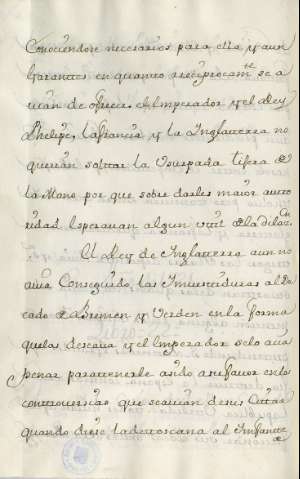 Conociendose necesarios para ella y aun
Garantes en quanto reciprocam.te se a
uian de ofrecer. el Imperador y el Rey
Phelipe, la francia y la Inglatterra no
querian soltar la Usurpada tisera de
la Mano por que sobre darles maior auto
ridad, esperauan algun util de la dilac.on
El Rey de Inglatterra aun no
auia Conseguido, las Imuestiduras al Du
cado de Bremen y Verden en la forma
que las deseaua y el Imperador se lo auia
penar para tenerle asido a su fauor en las
controuersias que seauian de sus Cittas
quando diese la de toscana al Infante